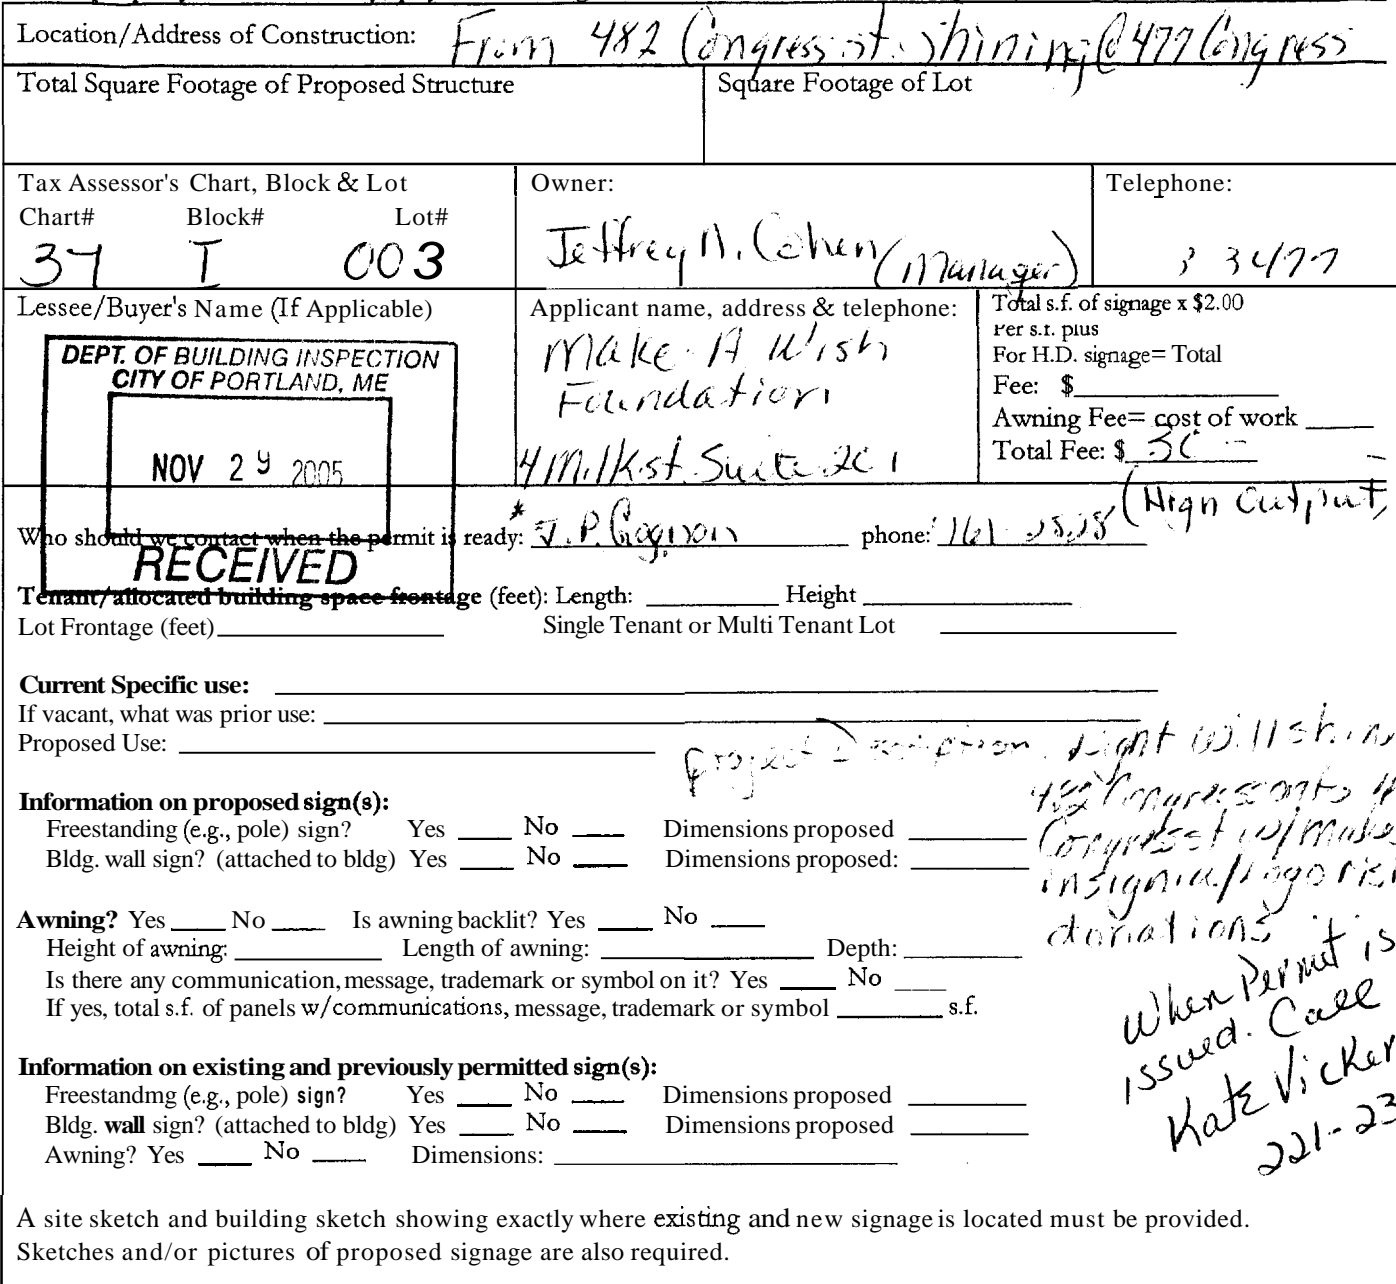 Location/Address of Construction: From 482 Congress st. shining @ 477 Congress
Total Square Footage of Proposed Structure
Square Footage of Lot
Tax Assessor's Chart, Block & Lot
Chart# Block# Lot#
37 I 003
Owner:
Jeffrey N. Cohen (Manager)
Telephone:
Lessee/Buyer's Name (If Applicable)
DEPT. OF BUILDING INSPECTION
CITY OF PORTLAND, ME
NOV 29 2005
RECEIVED
Applicant name, address & telephone:
Make A Wish
Foundation
4 Milk st. Suite 201
Total s.f. of signage x $2.00
Per s.f. plus
For H.D. signage= Total
Fee: $
Awning Fee= cost of work
Total Fee: $ 30 -
Who should we contact when the permit is ready: * J.P. Gagnon phone:
(High Output,
Tenant/allocated building space frontage (feet): Length: Height
Lot Frontage (feet) Single Tenant or Multi Tenant Lot
Current Specific use:
If vacant, what was prior use:
Proposed Use:
project Description. Light will shin
482 Congress onto 4
Congress st w/ Make
insignia/logo
donations
Information on proposed sign(s):
Freestanding (e.g., pole) sign? Yes No Dimensions proposed
Bldg. wall sign? (attached to bldg) Yes No Dimensions proposed:
Awning? Yes No Is awning backlit? Yes No
Height of awning: Length of awning: Depth:
Is there any communication, message, trademark or symbol on it? Yes No
If yes, total s.f. of panels w/communications, message, trademark or symbol s.f.
When Permit is
issued. Call
Kate Vicker
221-23
Information on existing and previously permitted sign(s):
Freestandmg (e.g., pole) sign? Yes No Dimensions proposed
Bldg. wall sign? (attached to bldg) Yes No Dimensions proposed
Awning? Yes No Dimensions:
A site sketch and building sketch showing exactly where existing and new signage is located must be provided.
Sketches and/or pictures of proposed signage are also required.